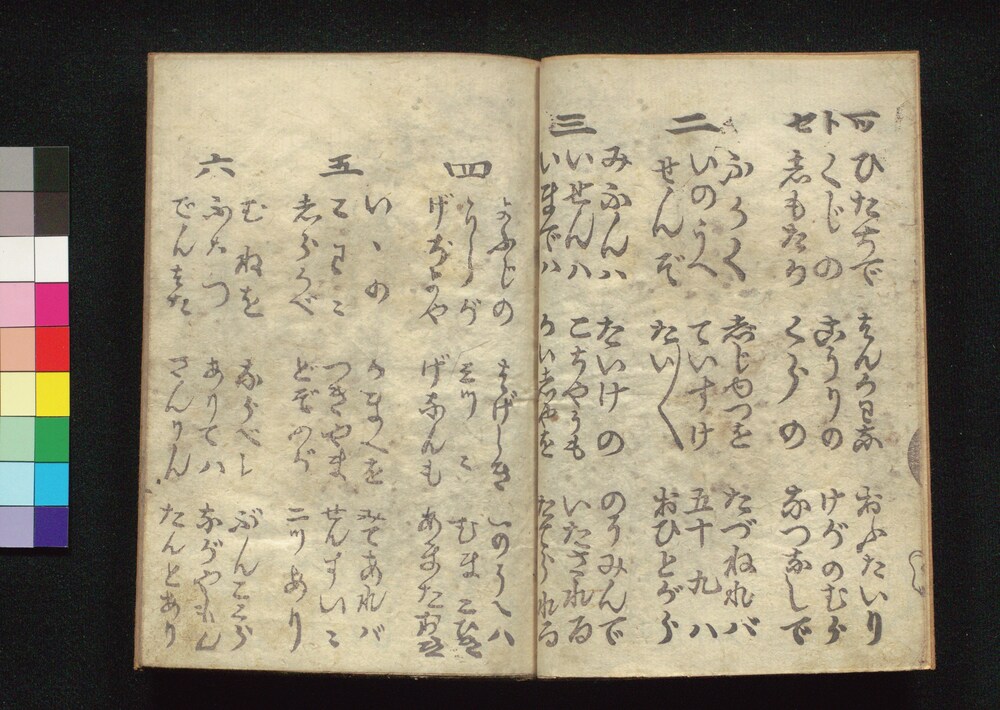 一ツ ひたちで おふたいり
ト くじの こうりの けがのむら
セ 志もたか くらの なつなしで
二 ふかく 志じやつを たづねれバ
いのうへ ていすけ 五十九ハ
せんぞ たい〱 おひとがら
三 みぶんハ たいけの のうみんで
いせんハ こちやうも いたされる
いまでハ かい志やを たてられる
四 はげしき いのうへハ
三ツ
げぢよや げなんも あまたおき
五 いゝの かまへを みてあれバ
つきやま せんすいこ
志らかべ どぞうが 二ツあり
六 むねを ならべし ぶんこくら
ふたつ ありてハ ながやもん
でんはた さんりん たんとあり